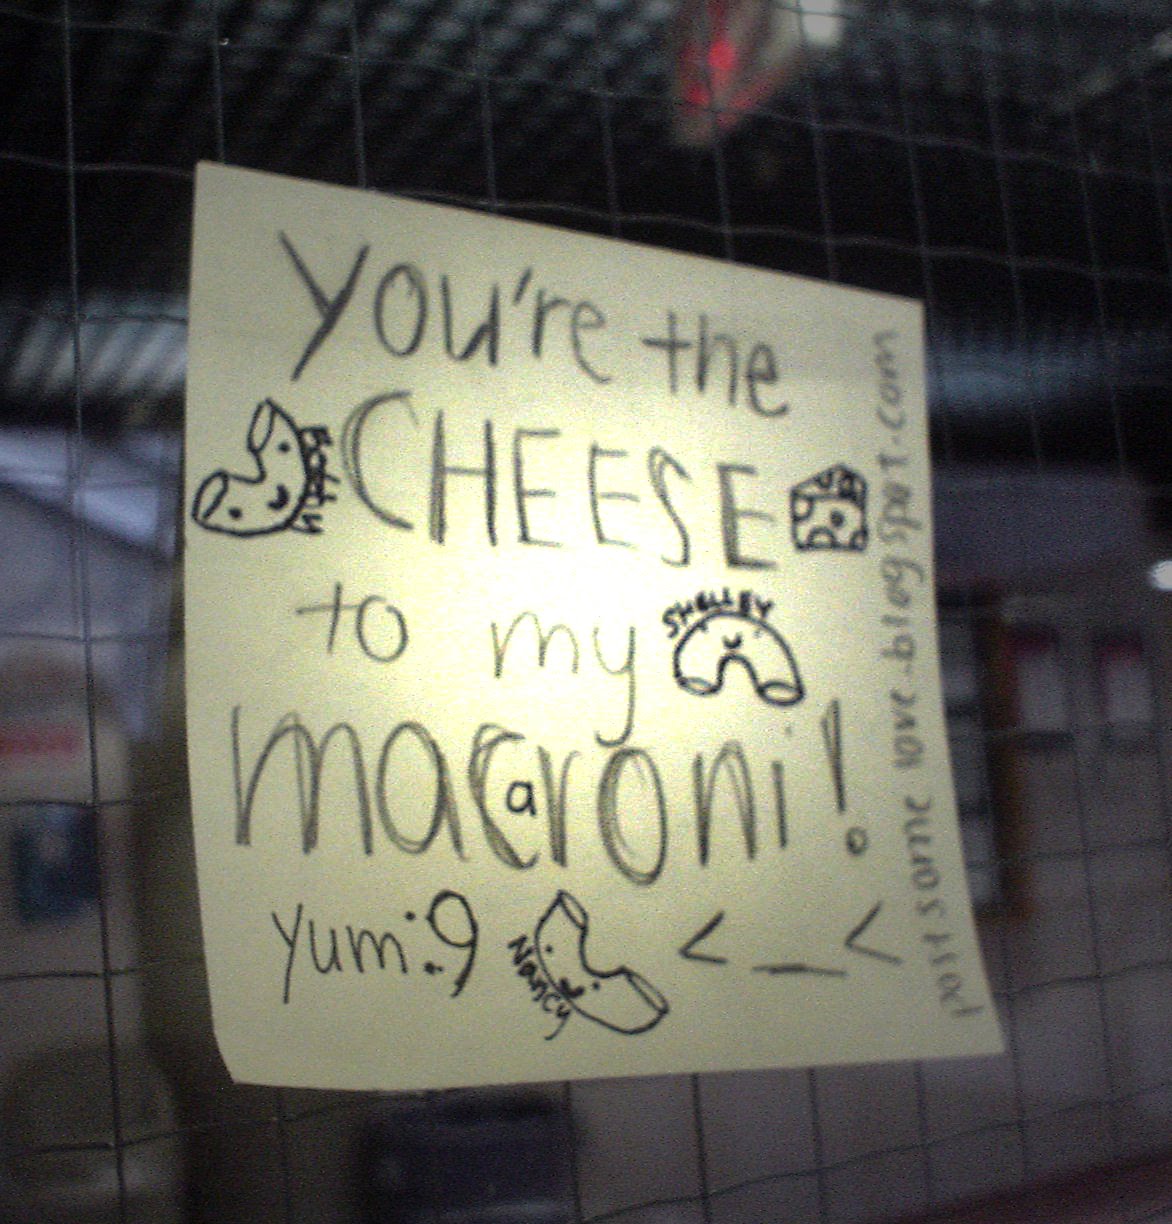 you're the
Bobby
CHEESE
to my
SHELLEY
macaroni!
yum :9
Nancy
<_<
postsomelove.blogspot.com